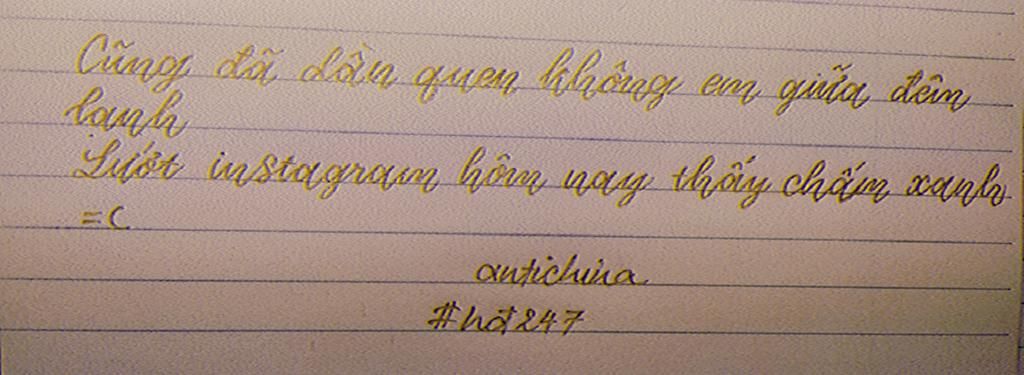 Cũng đã dần quen không em giữa đêm
lạnh
Lướt instagram hôm nay thấy chấm xanh
=C
antichina
#hđ247